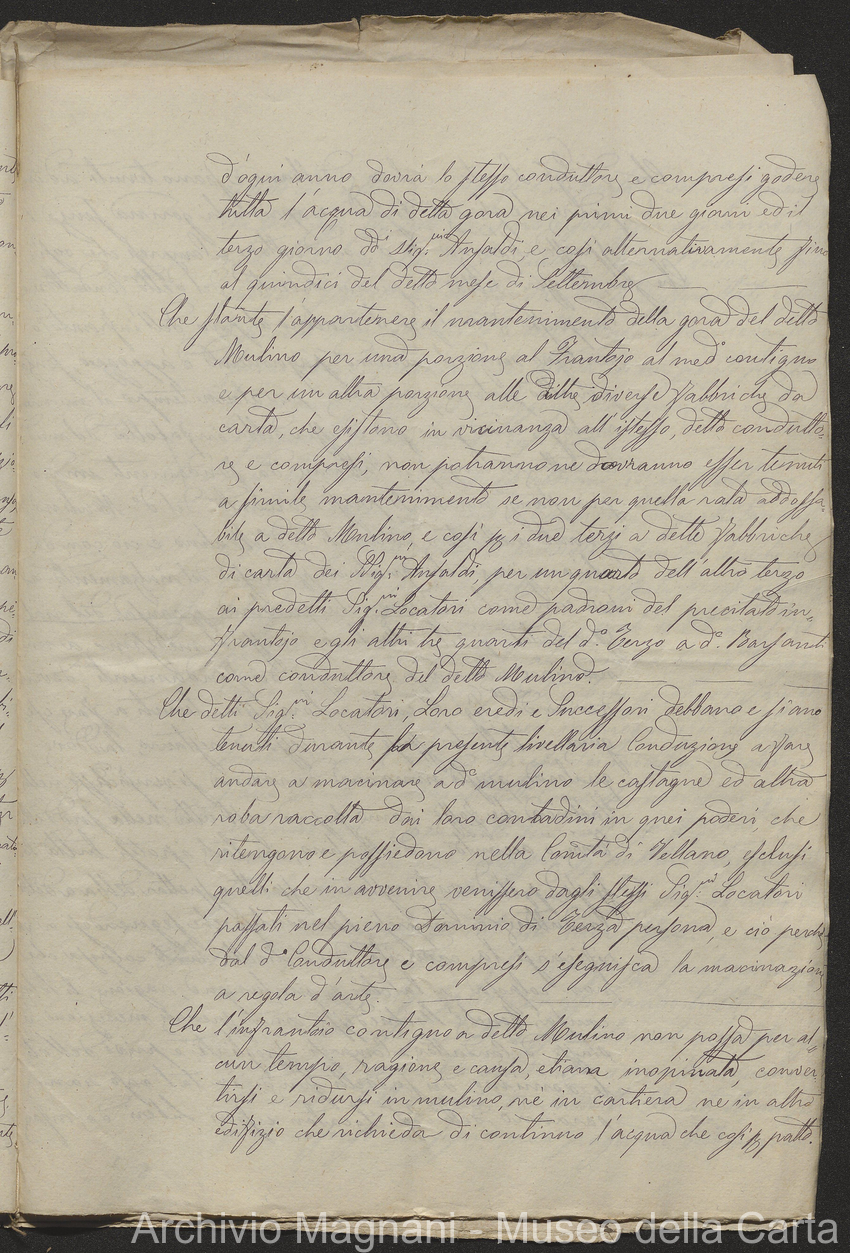 d'ogni anno dovrà lo stesso conduttore e compresi godere
tutta l'acqua di detta gora nei primi due giorni ed il
terzo giorno di Sig.ri Ansaldi e così alternativamente fino
al quindici del detto mese di Settembre
Che stante l'appartenere il mantenimento della gora del detto
Mulino per una porzione al Frantojo al med.o contiguo
e per un altra porzione alle diverse Fabbriche da
carta, che esistono in vicinanza all'istesso, detto condutto-
re e compresi, non potranno ne dovranno esser tenuti
a simile mantenimento se non per quella rata addossa-
bile a detto Mulino, e così p i due terzi a dette Fabbriche
di carta dei Sig.ri Ansaldi, per un quarto dell'altro terzo
ai predetti Sig.ri Locatori come padroni del precitato in-
frantojo e gli altri tre quarti del d.o Terzo a d.o Barsanti
come conduttore del detto Mulino.
Che detti Sig.ri Locatori, Loro eredi e Successori debbano e siano
tenuti durante la presente livellaria Conduzione a fare
andare a macinare a d.o mulino le castagne ed altra
roba raccolta dai loro contadini in quei poderi, che
ritengono e possiedono nella Com.tà di Vellano, esclusi
quelli che in avvenire venissero dagli stessi Sig.ri Locatori
passati nel pieno Dominio di Terza persona, e ciò perchè
dal d.o Conduttore e compresi s'eseguisca la macinazione
a regola d'arte.
Che l'infrantoio contiguo a detto Mulino non possa per al-
cun tempo, ragione e causa, etiam inopinata, conver-
tirsi e ridursi in mulino, nè in cartiera ne in altro
edifizio che richieda di continuo l'acqua che così p patto.
Archivio Magnani - Museo della Carta